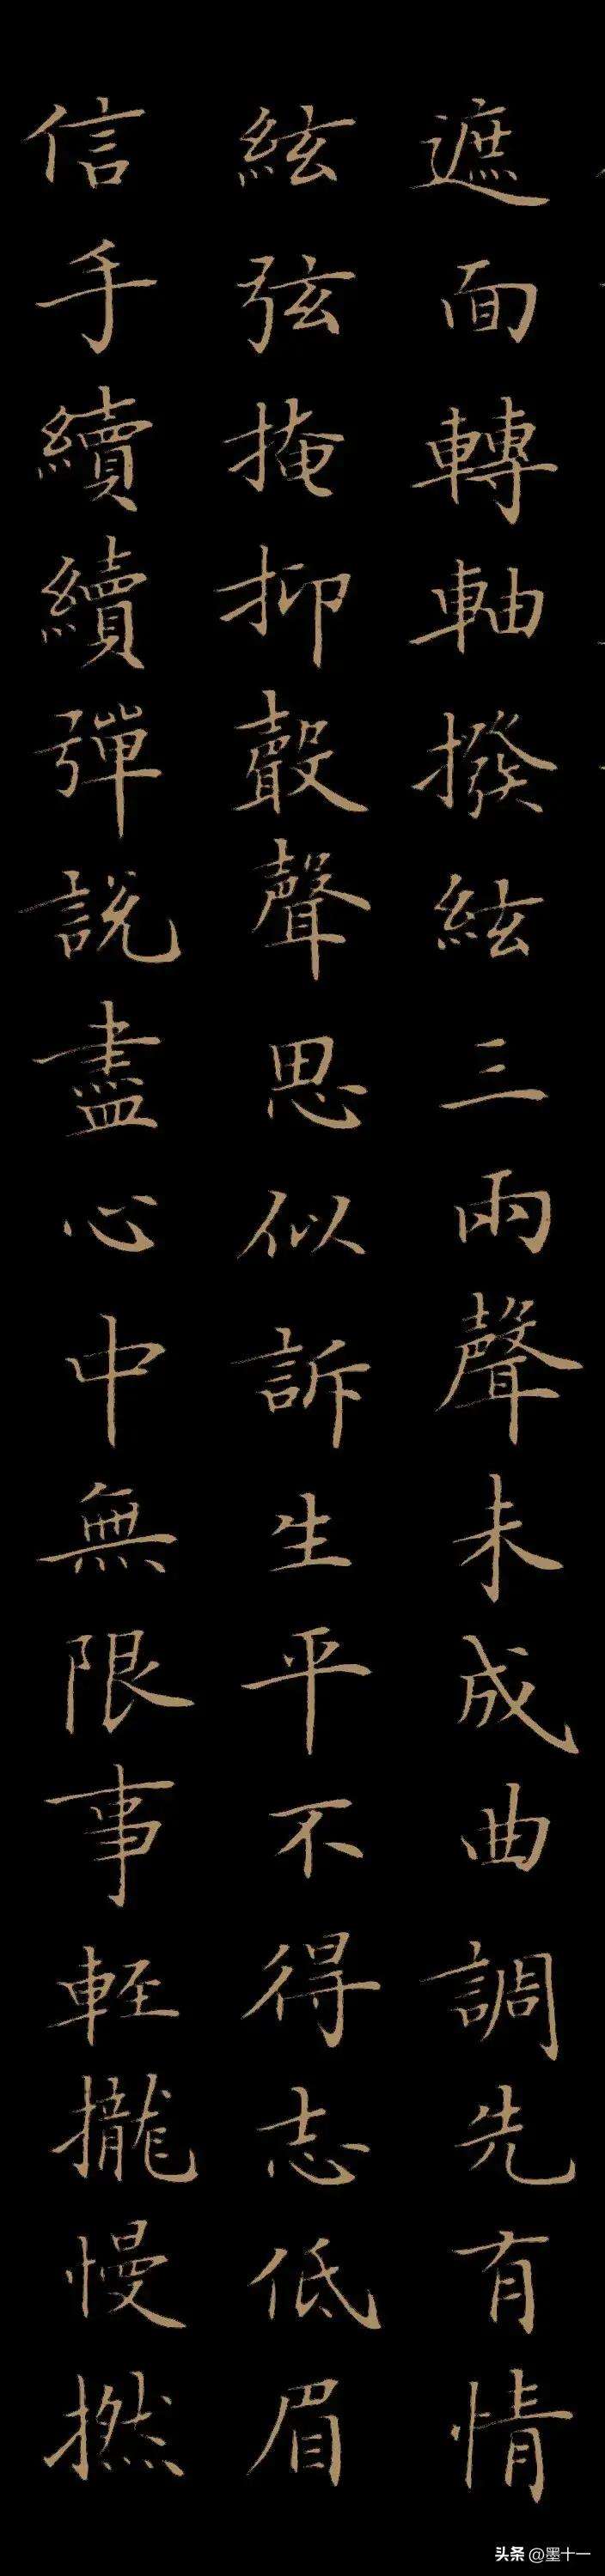 遮面轉軸撥絃三兩聲未成曲調先有情
絃弦掩抑聲聲思似訴生平不得志低眉
信手續續彈說盡心中無限事輕攏慢撚
头条 @墨十一